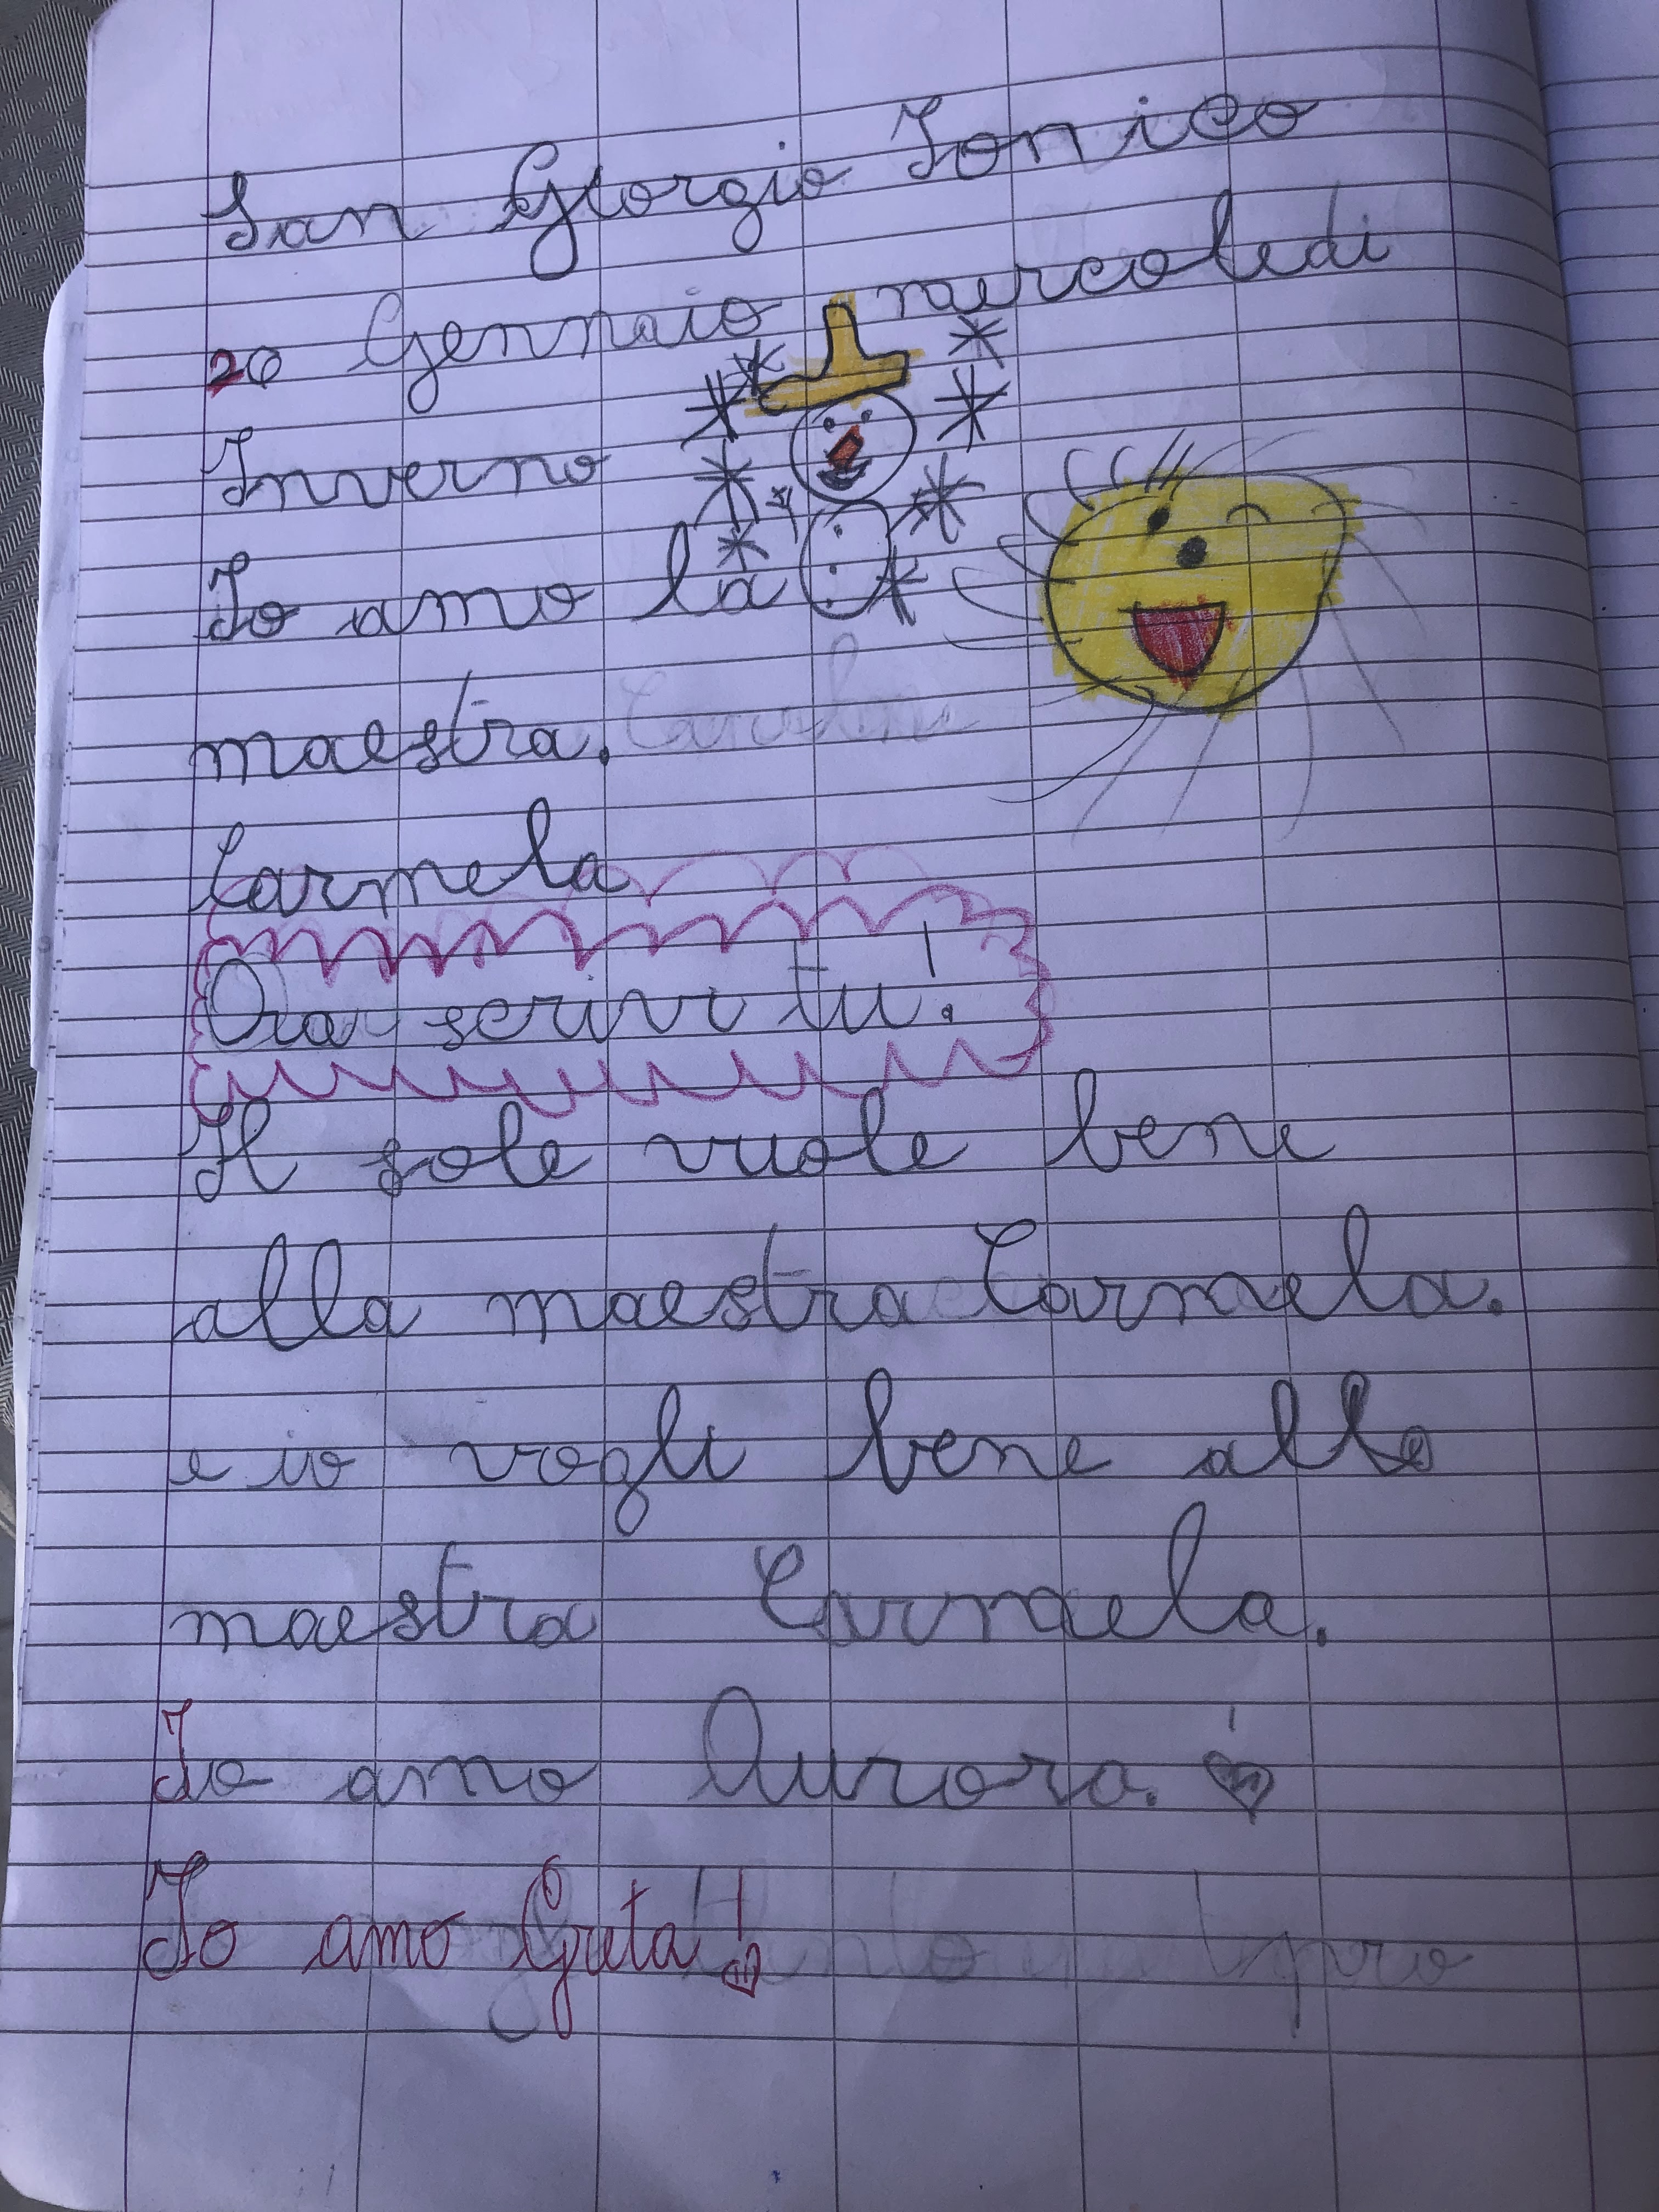 San Giorgio Ionico
20 Gennaio mercoledi
Inverno
Io amo la
maestra.
Carmela
Ora scrivi tu!
Il sole vuole bene
alla maestra Carmela.
e io vogli bene alla
maestra Carmela.
Io amo Aurora.
Io amo Greta!